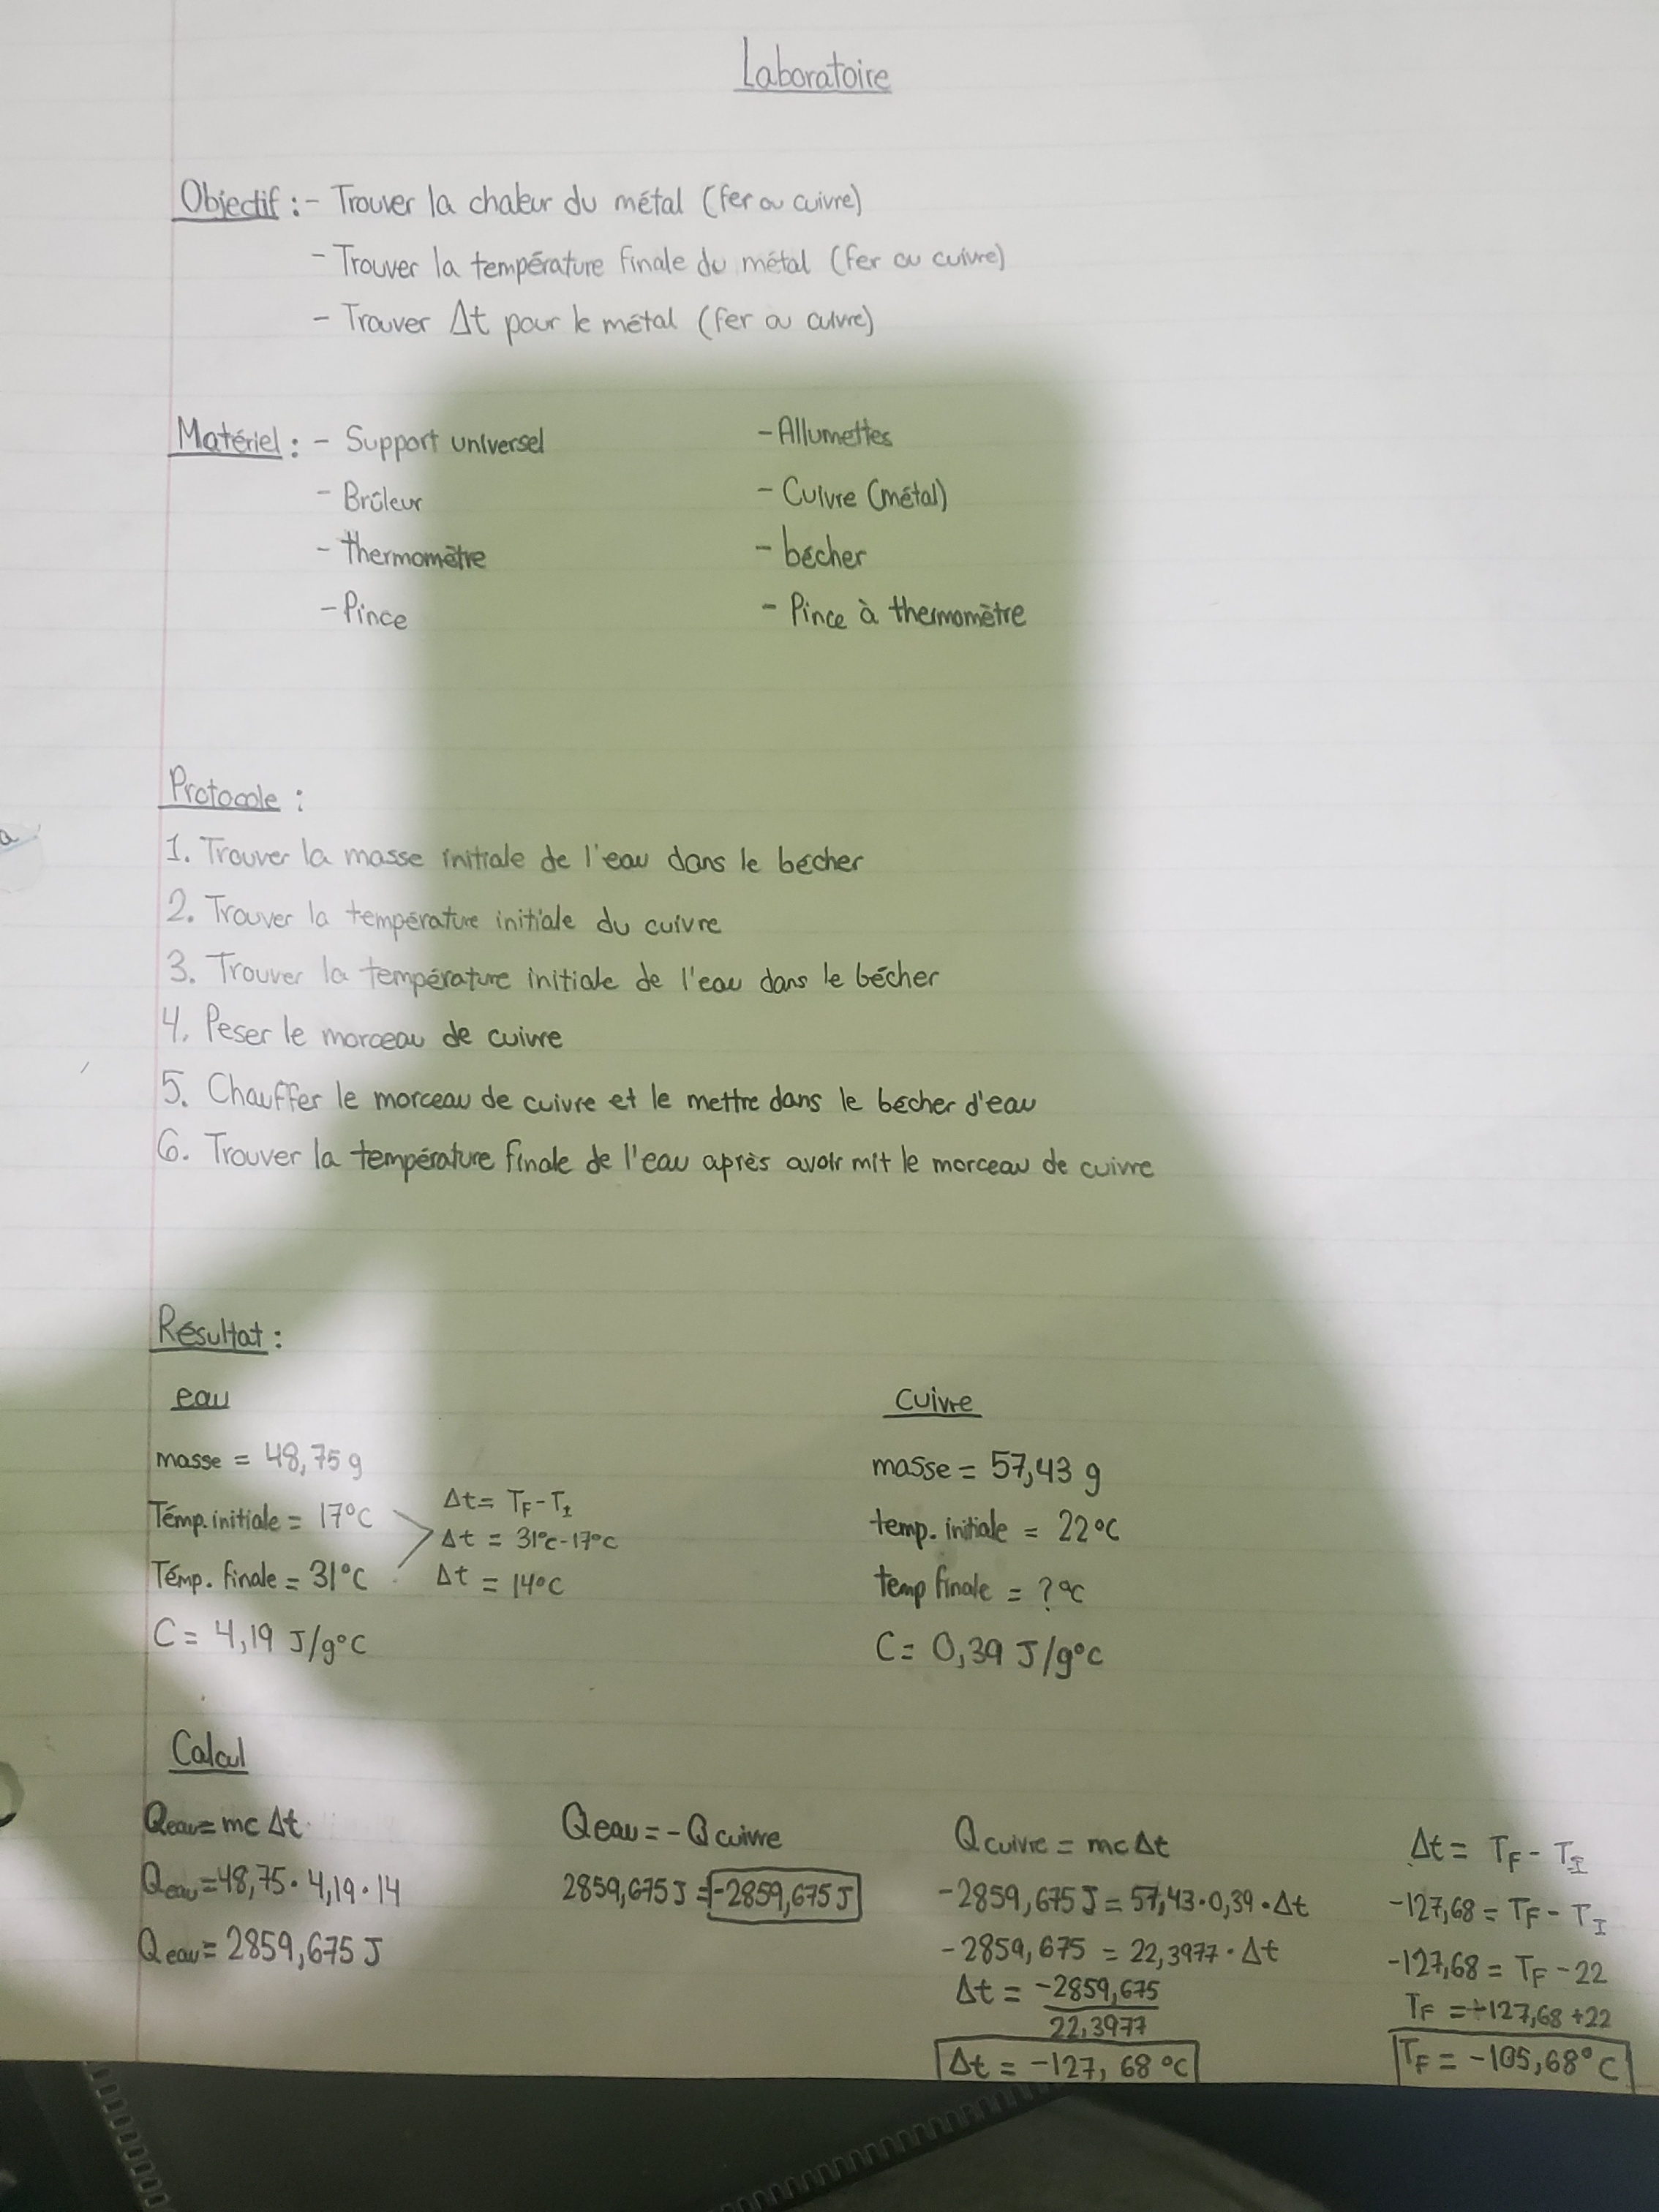 Laboratoire
Objectif : - Trouver la chaleur du métal (fer ou cuivre)
- Trouver la température finale du métal (fer ou cuivre)
- Trouver Δt pour le métal (fer ou cuivre)
Matériel : - Support universel
- Brûleur
- thermomètre
- Pince
- Allumettes
- Cuivre (métal)
- bécher
- Pince à thermomètre
Protocole :
1. Trouver la masse initiale de l'eau dans le bécher
2. Trouver la température initiale du cuivre
3. Trouver la température initiale de l'eau dans le bécher
4. Peser le morceau de cuivre
5. Chauffer le morceau de cuivre et le mettre dans le bécher d'eau
6. Trouver la température finale de l'eau après avoir mit le morceau de cuivre
Résultat :
eau
masse = 48,75 g
Témp. initiale = 17°C
Témp. finale = 31°C
C = 4,19 J/g°C
Δt = TF - TI
Δt = 31°C - 17°C
Δt = 14°C
cuivre
masse = 57,43 g
temp. initiale = 22°C
temp finale = ?°C
C = 0,39 J/g°C
Calcul
Qeau = mcΔt
Qeau = 48,75 · 4,19 · 14
Qeau = 2859,675 J
Qeau = -Qcuivre
2859,675 J = -2859,675 J
Qcuivre = mcΔt
-2859,675 J = 57,43 · 0,39 · Δt
-2859,675 = 22,3977 · Δt
Δt = -2859,675
22,3977
Δt = -127,68 °C
Δt = TF - TI
-127,68 = TF - TI
-127,68 = TF - 22
TF = -127,68 + 22
TF = -105,68°C